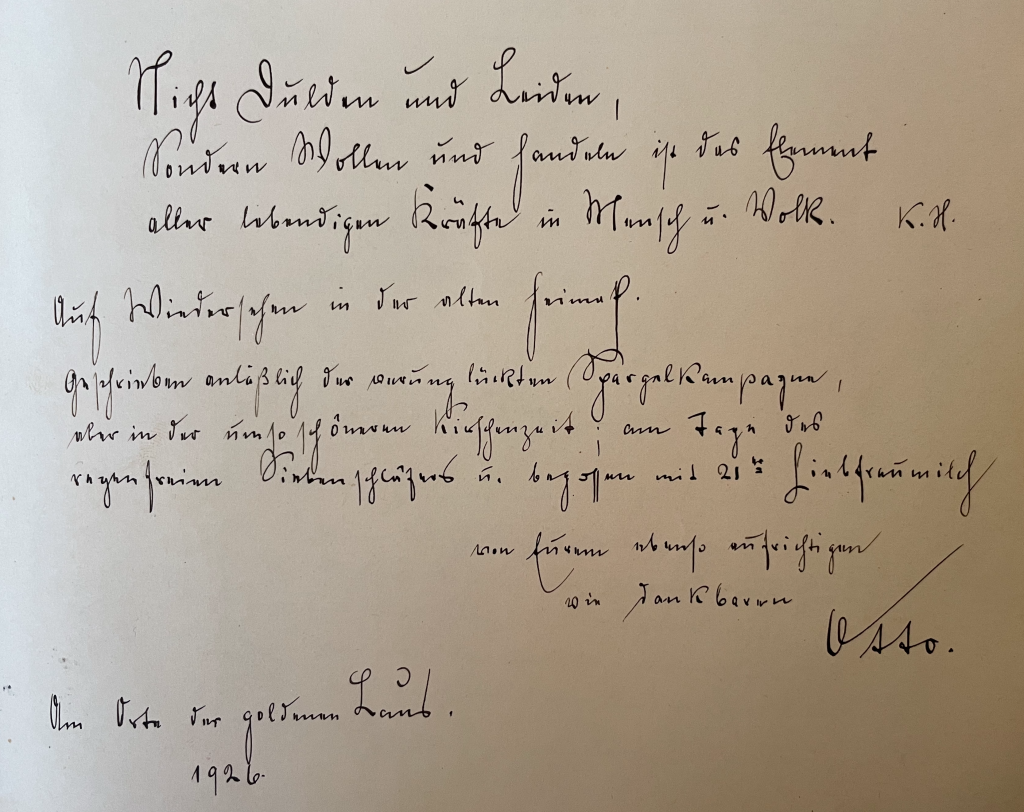 Nicht Dulden und Leiden,
Sondern Wollen und Handeln ist das Element
aller lebendigen Kräfte in Mensch u. Volk. K. H.
Auf Wiedersehen in der alten Heimat.
Geschrieben anläßlich der verunglückten Spargelkampagne,
aber in der umso schöneren Kirschenzeit; am Tage des
regenfreien Siebenschläfers u. begossen mit 21er Liebfraumilch
von Eurem ebenso aufrichtigen
wie dankbaren
Otto.
Am Orte der goldenen Laus.
1926.